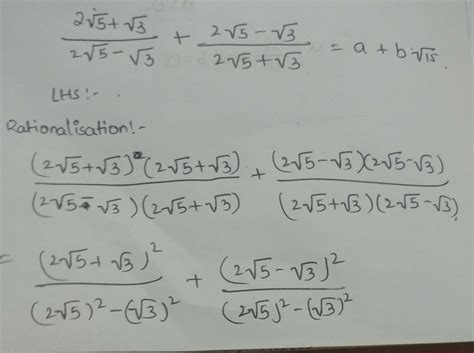 (2√5 + √3)/(2√5 - √3) + (2√5 - √3)/(2√5 + √3) = a + b√15.
LHS:-
Rationalisation:-
(2√5+√3)(2√5+√3)/(2√5-√3)(2√5+√3) + (2√5-√3)(2√5-√3)/(2√5+√3)(2√5-√3)
= (2√5+√3)²/(2√5)²-(√3)² + (2√5-√3)²/(2√5)²-(√3)²